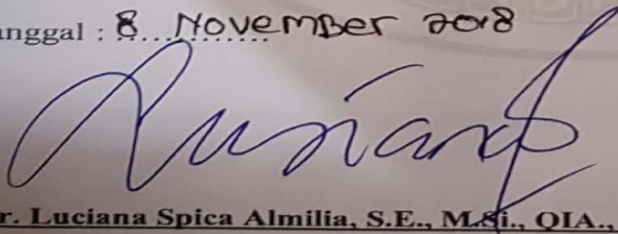 anggal : 8 November 2018
Lusiana
r. Luciana Spica Almilia, S.E., M.Si., QIA.,